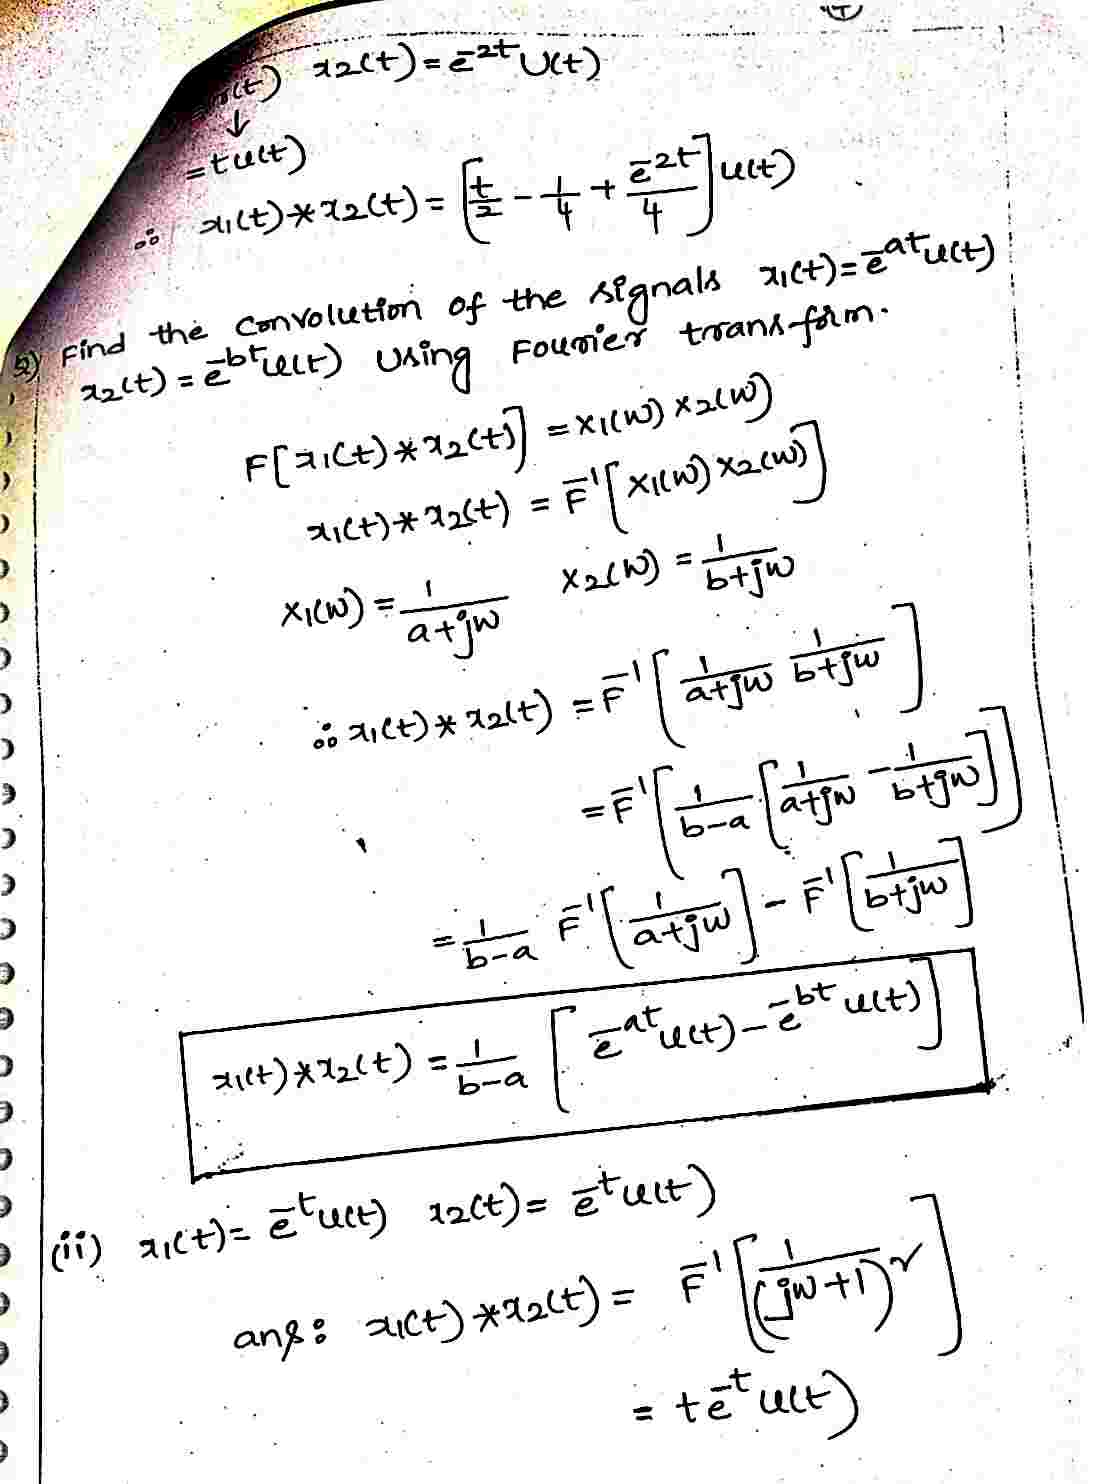 r(t) x2(t) = e^-2t U(t)
↓
= t u(t)
∴ x1(t) * x2(t) = [t/2 - 1/4 + e^-2t/4] u(t)
2) Find the convolution of the signals x1(t) = e^-at u(t)
x2(t) = e^-bt u(t) using Fourier transform.
F[x1(t) * x2(t)] = X1(w) X2(w)
x1(t) * x2(t) = F^-1 [X1(w) X2(w)]
X1(w) = 1/(a+jw) X2(w) = 1/(b+jw)
∴ x1(t) * x2(t) = F^-1 [1/(a+jw) 1/(b+jw)]
= F^-1 [1/(b-a) [1/(a+jw) - 1/(b+jw)]]
= 1/(b-a) F^-1 [1/(a+jw)] - F^-1 [1/(b+jw)]
x1(t) * x2(t) = 1/(b-a) [e^-at u(t) - e^-bt u(t)]
(ii) x1(t) = e^-t u(t) x2(t) = e^-t u(t)
ans: x1(t) * x2(t) = F^-1 [1/(jw+1)^2]
= t e^-t u(t)